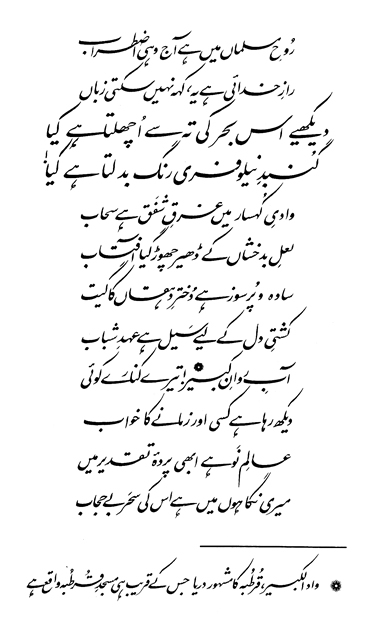 رُوحِ مسلماں میں ہے آج وہی اضطراب
رازِ خدائی ہے یہ، کہہ نہیں سکتی زباں
دیکھیے اس بحر کی تہ سے اُچھلتا ہے کیا
گُنبدِ نیلوفری رنگ بدلتا ہے کیا!
وادیِ کُہسار میں غرقِ شفَق ہے سحاب
لعلِ بدخشاں کے ڈھیر چھوڑ گیا آفتاب
سادہ و پُرسوز ہے دُخترِ دہقاں کا گیت
کشتیِ دل کے لیے سَیل ہے عہدِ شباب
آبِ روانِ کبیر! تیرے کنارے کوئی
دیکھ رہا ہے کسی اور زمانے کا خواب
عالمِ نَو ہے ابھی پردۂ تقدیر میں
میری نگاہوں میں ہے اس کی سحَر بے حجاب
واد الکبیر، قُرطُبہ کا مشہور دریا جس کے قریب ہی مسجدِ قُرطُبہ واقع ہے